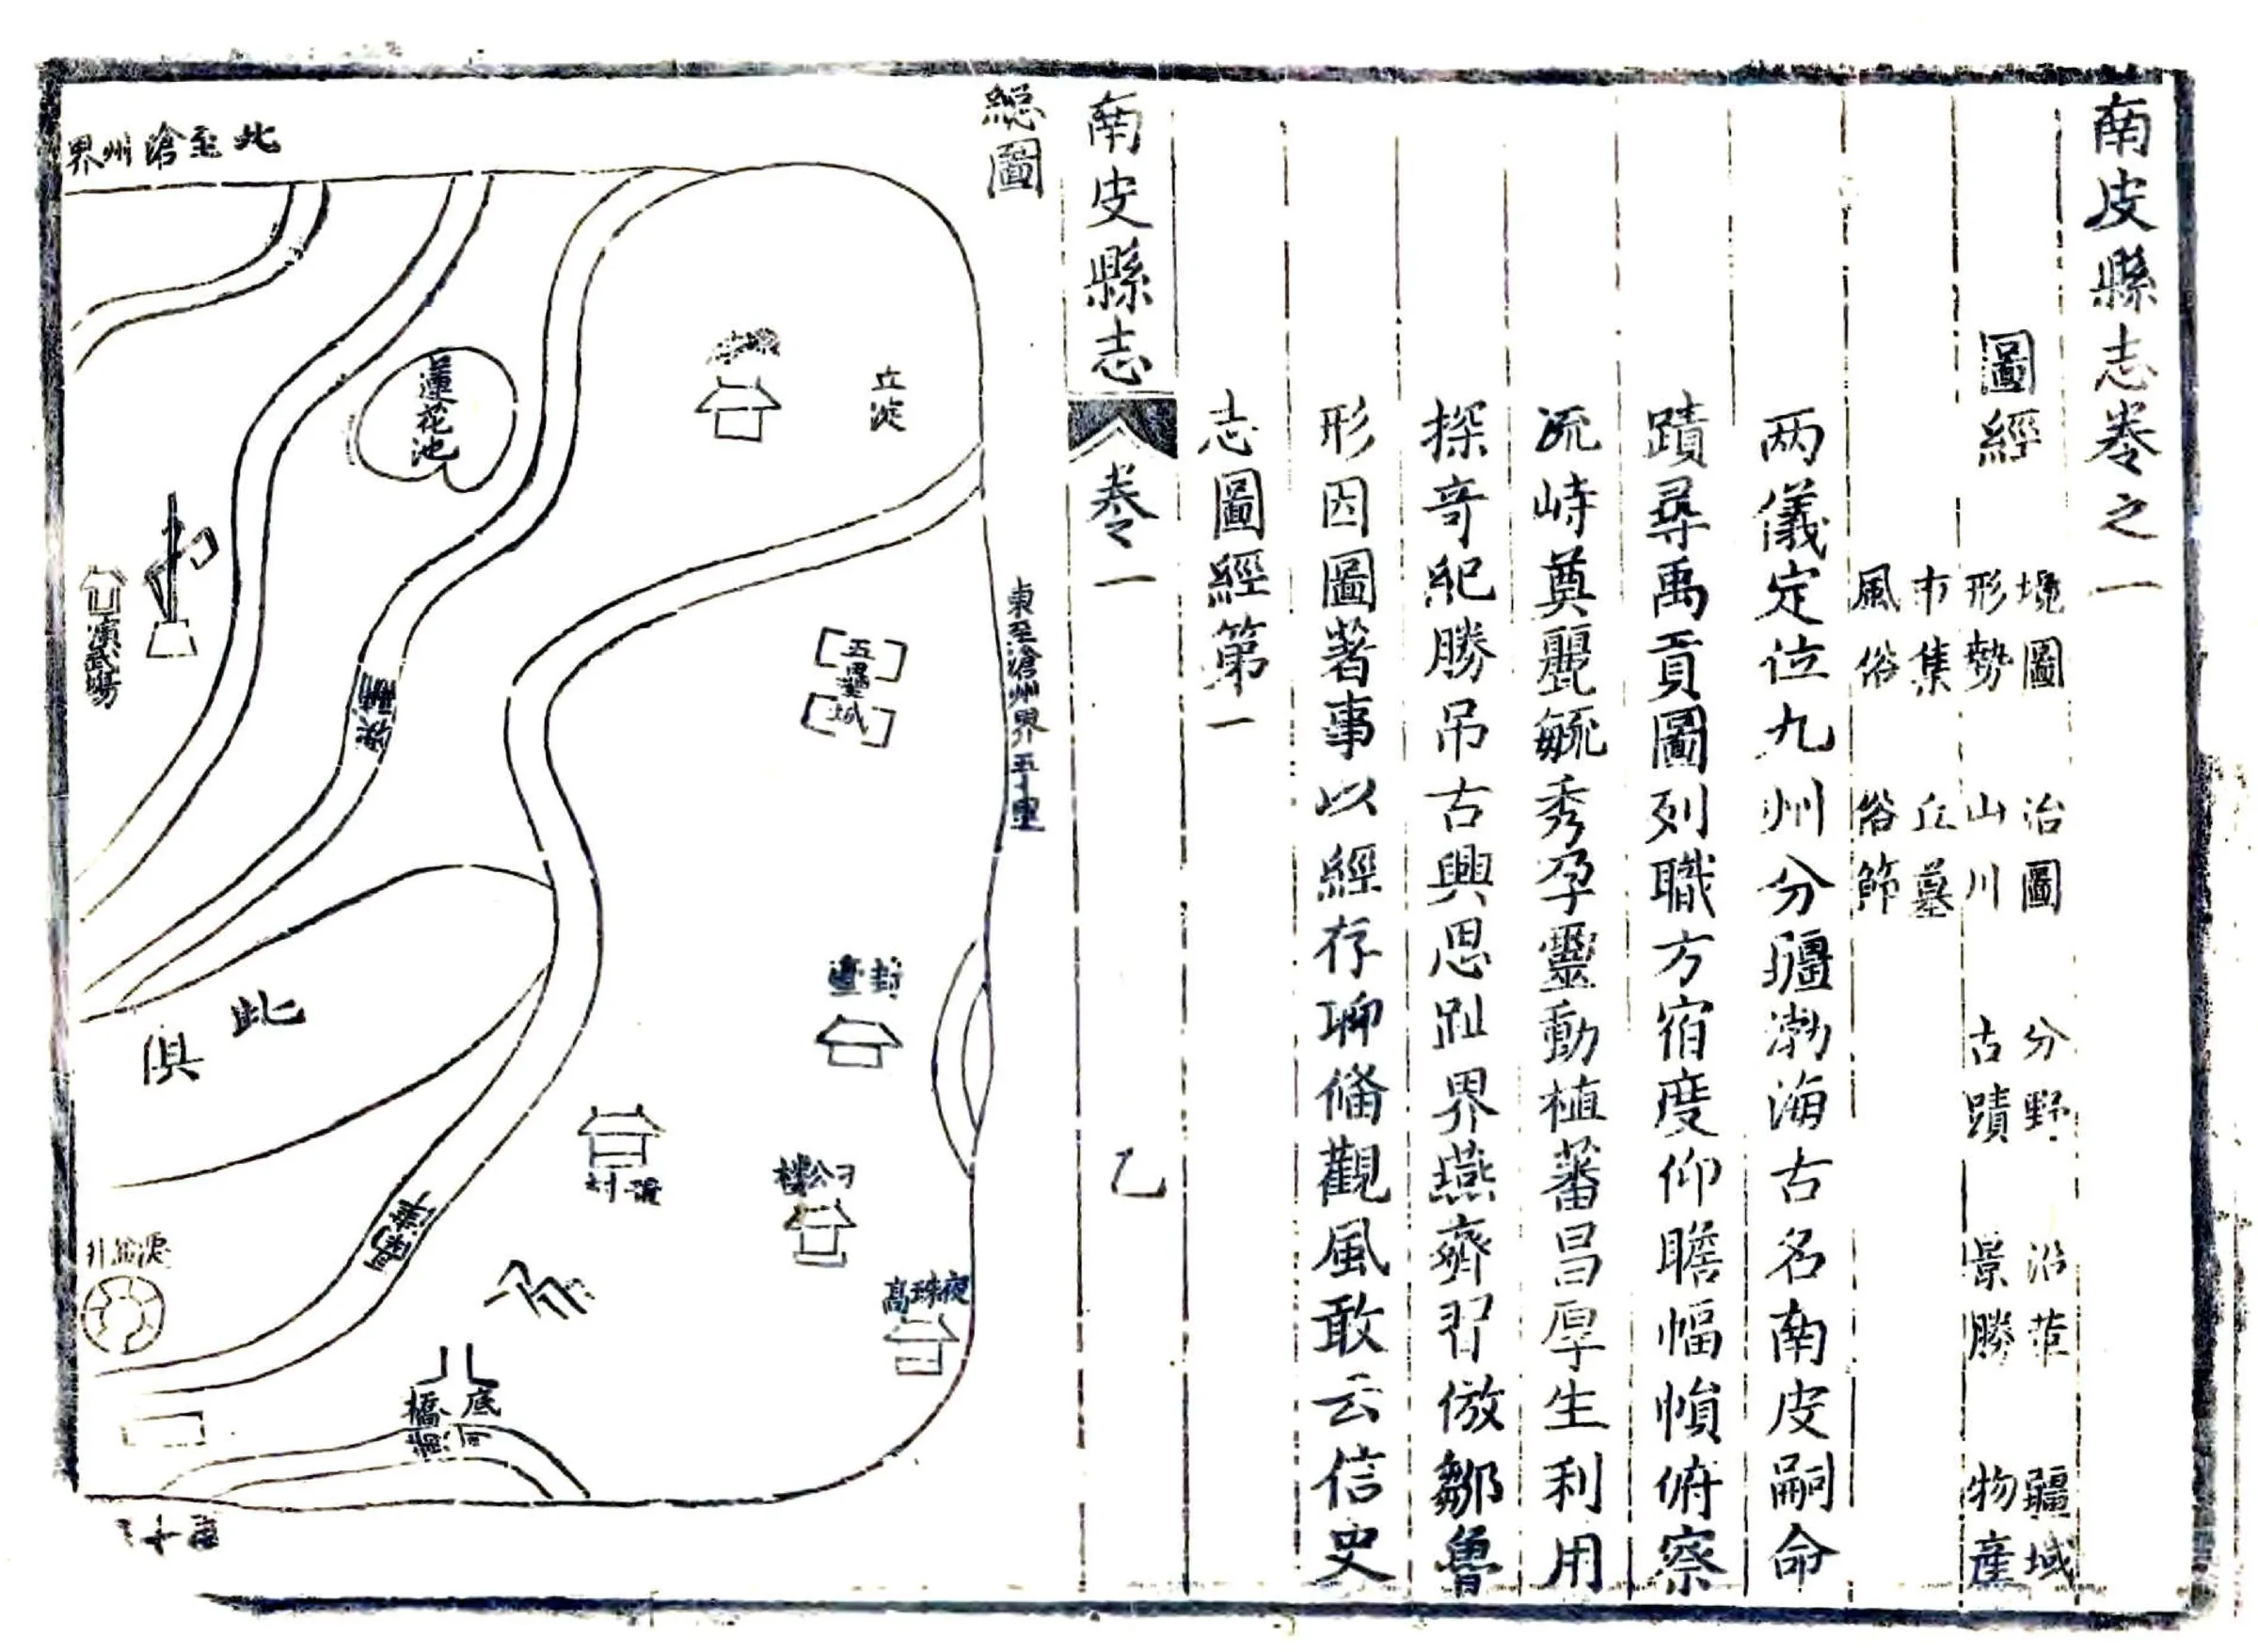 南皮縣志卷之一
圖經
境圖 治圖 分野 沿革 疆域
形勢 山川 古蹟 景勝 物產
市集 丘墓
風俗 俗節
两儀定位九州分疆渤海古名南皮嗣命
蹟尋禹貢圖列職方宿度仰瞻幅幀俯察
流峙奠麗毓秀孕靈動植蕃昌厚生利用
探奇紀勝吊古興思趾界燕齊習倣鄒魯
形因圖著事以經存聊備觀風敢云信史
志圖經第一
南皮縣志
卷一
乙
總圖
東至滄州界五十里
北至滄州界
蓮花池
演武塲
封臺
夜珠高
底橋